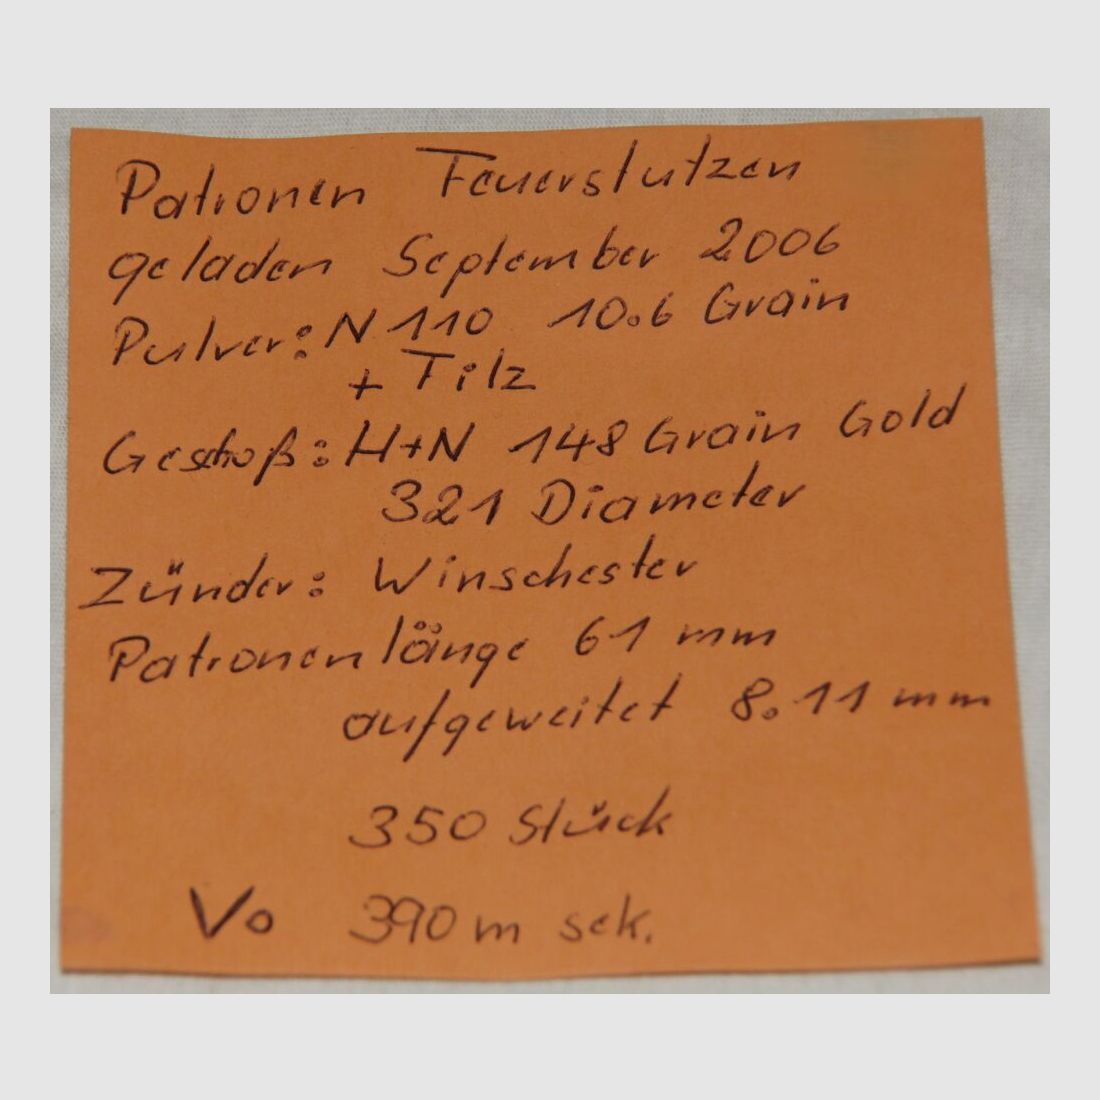 Patronen Feuerstutzen
geladen September 2006
Pulver: N 110 10.6 Grain
+ Filz
Geschoß: H+N 148 Grain Gold
321 Diameter
Zünder: Winschester
Patronenlänge 61 mm
aufgeweitet 8.11 mm
350 Stück
Vo 390 m sek.